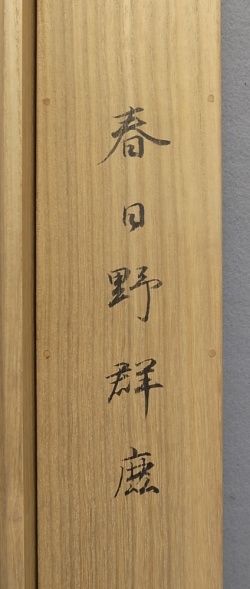 春日野群鹿